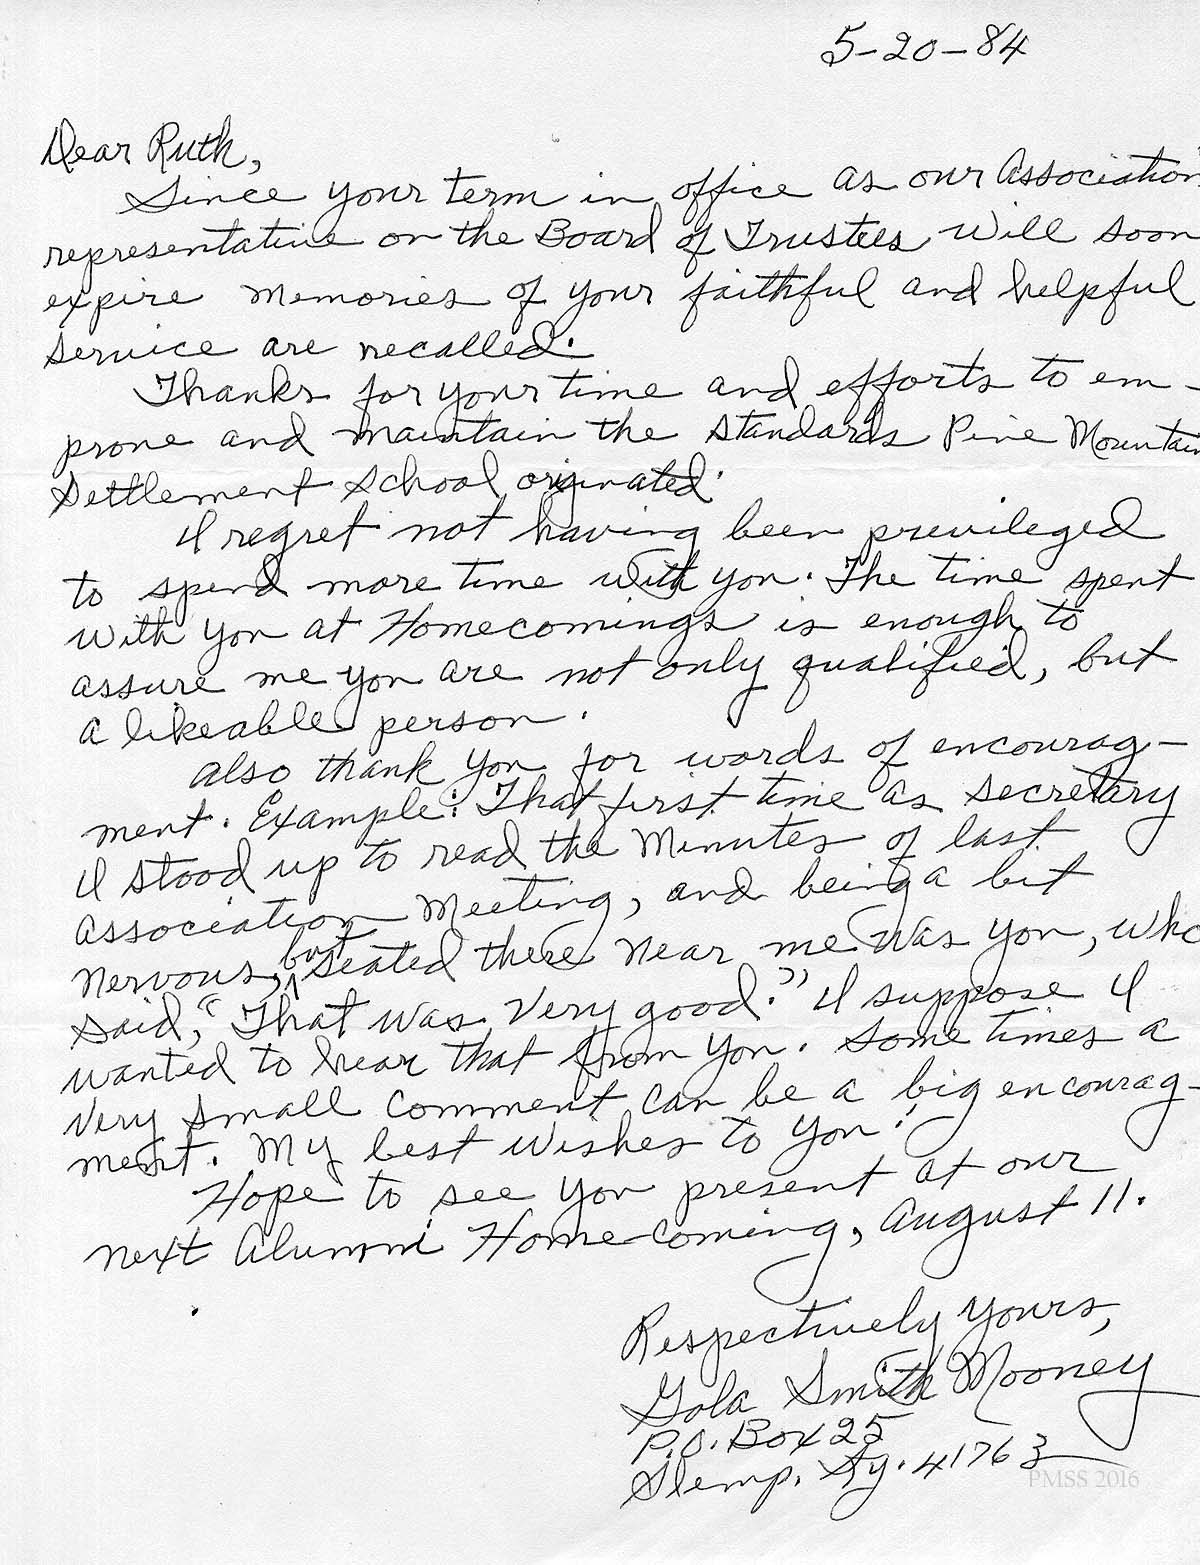 5-20-84
Dear Ruth,
Since your term in office as our Association
representative on the Board of Trustees will soon
expire memories of your faithful and helpful
service are recalled.
Thanks for your time and efforts to em-
prove and maintain the standards Pine Mountain
Settlement School originated.
I regret not having been privileged
to spend more time with you. The time spent
with you at Homecomings is enough to
assure me you are not only qualified, but
a likeable person.
Also thank you for words of encourag-
ment. Example: That first time as secretary
I stood up to read the Minutes of last
Association Meeting, and being a bit
nervous, but seated there near me was you, who
said, "That was very good." I suppose I
wanted to hear that from you. Some times a
very small comment can be a big encourag-
ment. My best wishes to you!
Hope to see you present at our
next Alumni Homecoming, August 11.
Respectively yours,
Gola Smith Mooney
P.O. Box 25
Slemp, Ky. 41763
PMSS 2016